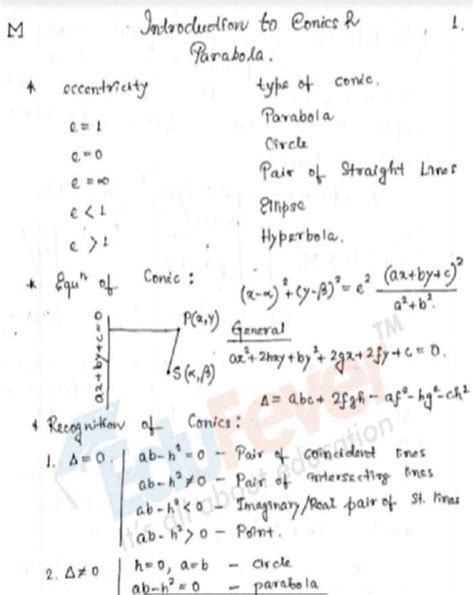 M Introduction to Conics & 1.
Parabola.
* eccentricity type of conic.
e = 1 Parabola
e = 0 Circle
e = ∞ Pair of Straight Lines
e < 1 Ellipse
e > 1 Hyperbola.
* Equⁿ of Conic : (x-α)²+(y-β)² = e² (ax+by+c)² / a²+b².
ax+by+c=0
P(x,y)
S(α,β)
General
ax²+2hxy+by²+2gx+2fy+c = 0.
Δ = abc+2fgh-af²-bg²-ch²
* Recognition of Conics:
1. Δ=0. ab-h²=0 - Pair of coincident lines
ab-h²≠0 - Pair of intersecting lines
ab-h²<0 - Imaginary/Real pair of St. lines
ab-h²>0 - Point.
2. Δ≠0 h=0, a=b - circle
ab-h²=0 - parabola
EduFever TM
it's all about education